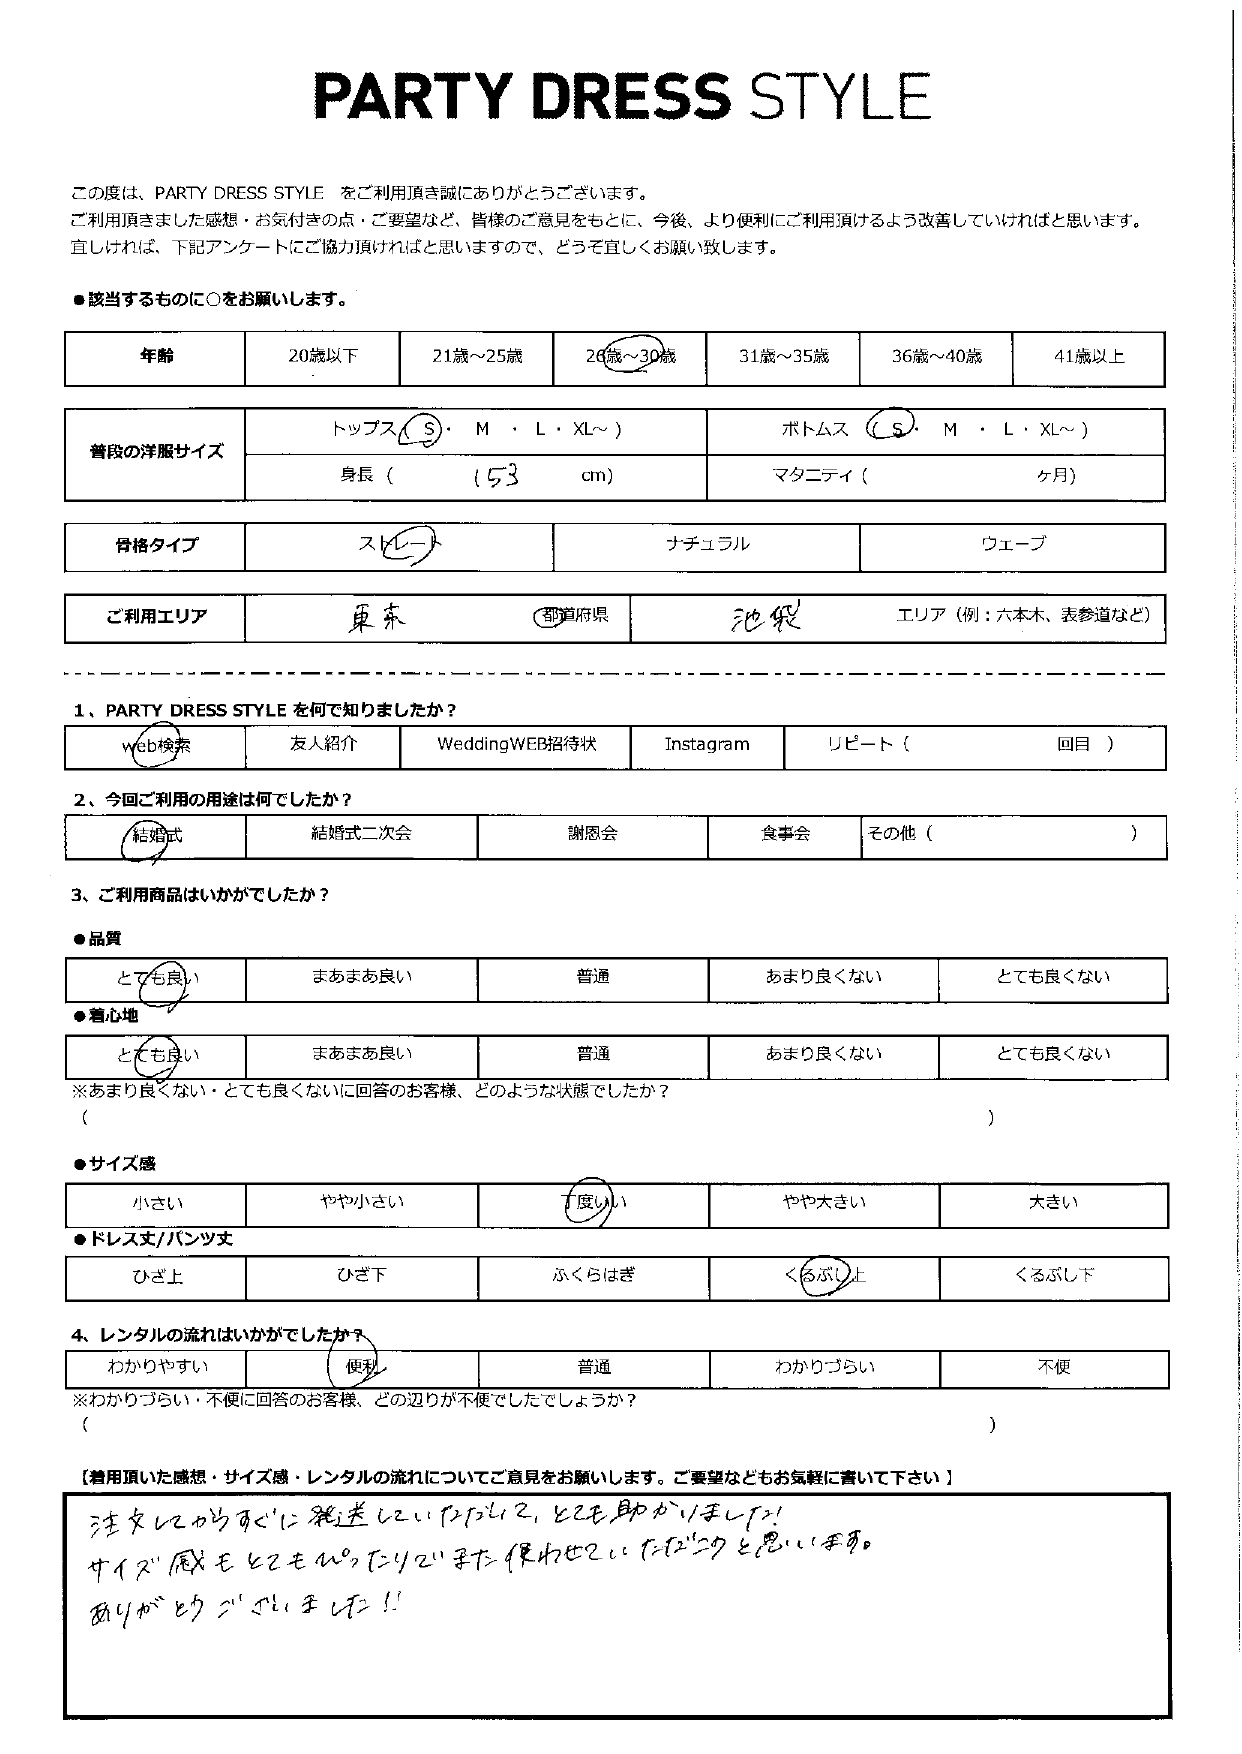 PARTY DRESS STYLE
この度は、PARTY DRESS STYLE をご利用頂き誠にありがとうございます。
ご利用頂きました感想・お気付きの点・ご要望など、皆様のご意見をもとに、今後、より便利にご利用頂けるよう改善していければと思います。
宜しければ、下記アンケートにご協力頂ければと思いますので、どうぞ宜しくお願い致します。
●該当するものに○をお願いします。
年齢 20歳以下 21歳～25歳 26歳～30歳 31歳～35歳 36歳～40歳 41歳以上
普段の洋服サイズ
トップス( S・ M ・ L・ XL～ ) ボトムス ( S・ M ・ L・ XL～ )
身長 ( 153 cm) マタニティ ( ヶ月)
骨格タイプ ストレート ナチュラル ウェーブ
ご利用エリア 東京 都道府県 池袋 エリア（例：六本木、表参道など）
1、PARTY DRESS STYLE を何で知りましたか？
web検索 友人紹介 WeddingWEB招待状 Instagram リピート ( 回目 )
2、今回ご利用の用途は何でしたか？
結婚式 結婚式二次会 謝恩会 食事会 その他 ( )
3、ご利用商品はいかがでしたか？
●品質
とても良い まあまあ良い 普通 あまり良くない とても良くない
●着心地
とても良い まあまあ良い 普通 あまり良くない とても良くない
※あまり良くない・とても良くないに回答のお客様、どのような状態でしたか？
( )
●サイズ感
小さい やや小さい 丁度いい やや大きい 大きい
●ドレス丈/パンツ丈
ひざ上 ひざ下 ふくらはぎ くるぶし上 くるぶし下
4、レンタルの流れはいかがでしたか？
わかりやすい 便利 普通 わかりづらい 不便
※わかりづらい・不便に回答のお客様、どの辺りが不便でしたでしょうか？
( )
【着用頂いた感想・サイズ感・レンタルの流れについてご意見をお願いします。ご要望などもお気軽に書いて下さい 】
注文してからすぐに発送していただいて、とても助かりました!
サイズ感もとてもぴったりでまた使わせていただこうと思います。
ありがとうございました!!